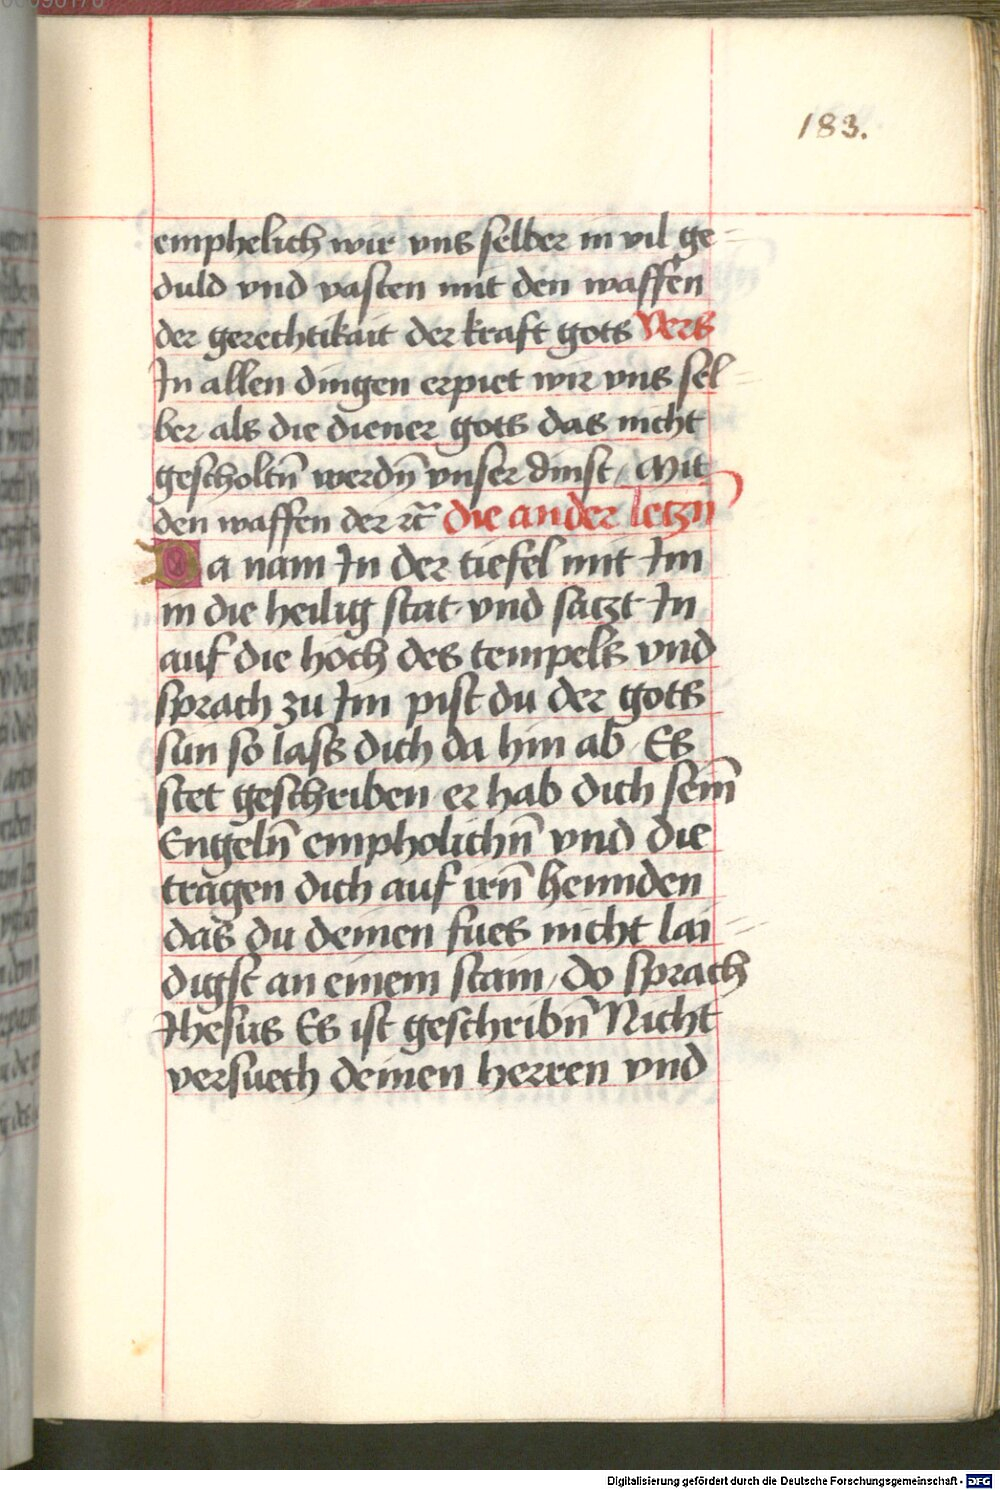 183.
emphelich wir vns selber in vil ge=
duld vnd vasten mit den waffen
der gerechtikait der kraft gots Vers
In allen dingen erpiet wir vns sel=
ber als die diener gots das nicht
gescholtn̄ werdn̄ vnser dinst / Mit
den waffen der rc̄ die ander letzn̄
Da nam In der tiefel mit Im
in die heilig stat vnd säczt In
auf die höch des tempels vnd
sprach zu Im pist du der gots
sun so lass dich da hin ab / Es
stet geschriben er hab dich sein̄
Engeln̄ empholichn̄ vnd die
tragen dich auf irn̄ hennden
das du deinen fues nicht lai=
digst an einem stain / do sprach
Jhesus Es ist geschribn̄ Nicht
versuech deinen herren vnd
Digitalisierung gefördert durch die Deutsche Forschungsgemeinschaft - DFG